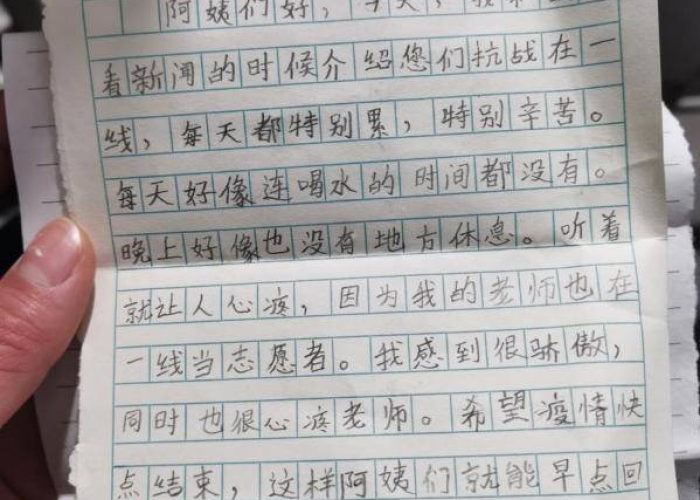 阿姨们好,
看新闻的时候介绍您们抗战在一
线,每天都特别累,特别辛苦。
每天好像连喝水的时间都没有。
晚上好像也没有地方休息。听着
就让人心疼,因为我的老师也在
一线当志愿者。我感到很骄傲,
同时也很心疼老师。希望疫情快
点结束,这样阿姨们就能早点回